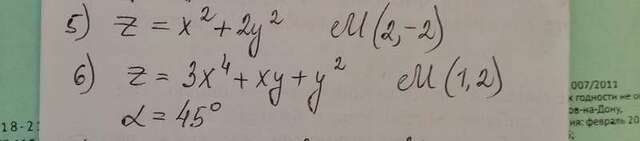 5) z = x² + 2y² M(2,-2)
6) z = 3x⁴ + xy + y² M(1,2)
α = 45°
007/2011
годности не
ов-на-Дону,
ия: февраль 20
18-2